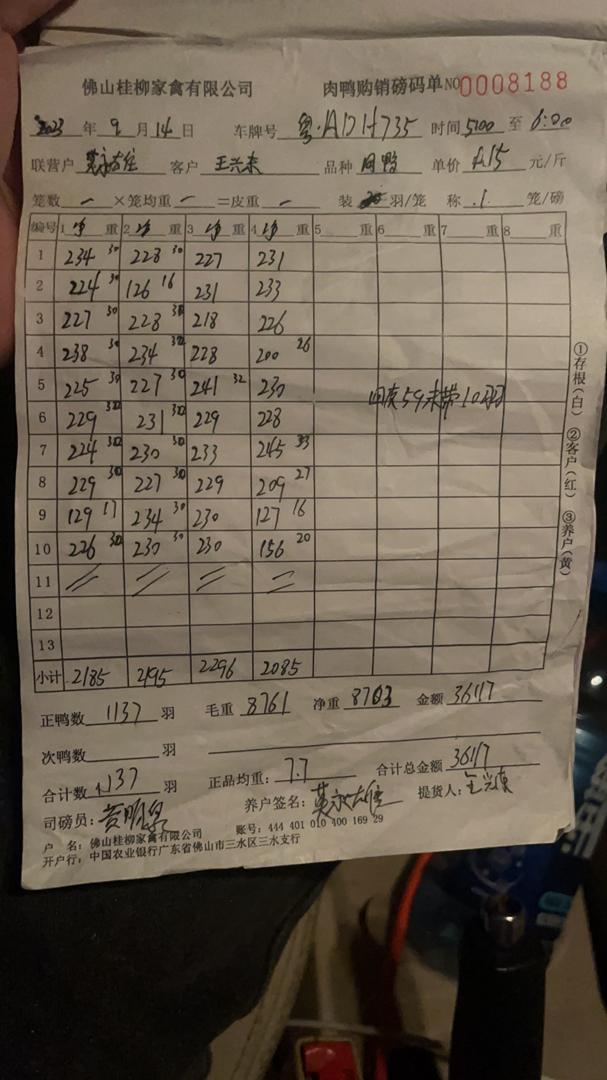 佛山桂柳家禽有限公司 肉鸭购销磅码单 NO 0008188
2023 年 9 月 14 日 车牌号 粤·ADH735 时间 5:00 至 6:00
联营户 客户 王兴来 品种 肉鸭 单价 4.15 元/斤
笼数 一 ×笼均重 一 =皮重 一 装 30 羽/笼 称 1 笼/磅
编号 1 净 重 2 净 重 3 净 重 4 净 重 5 重 6 重 7 重 8 重
1 234 30 228 30 227 231
2 224 30 126 16 231 233
3 227 30 228 30 218 226
4 238 30 234 30 228 200 26
5 225 30 227 30 241 32 230
6 229 30 231 30 229 228
7 224 30 230 30 233 245 33
8 229 30 227 30 229 209 27
9 129 17 234 30 230 127 16
10 226 30 230 30 230 156 20
11 // // // //
12
13
小计 2185 2195 2296 2085
59 未带 10 羽
①存根(白) ②客户(红) ③养户(黄)
正鸭数 1137 羽 毛重 8761 净重 8703 金额 36117
次鸭数 羽
合计数 1137 羽 正品均重: 7.7 合计总金额 36117
司磅员: 养户签名: 提货人:
户 名: 佛山桂柳家禽有限公司 账号: 444 401 010 400 169 29
开户行: 中国农业银行广东省佛山市三水区三水支行